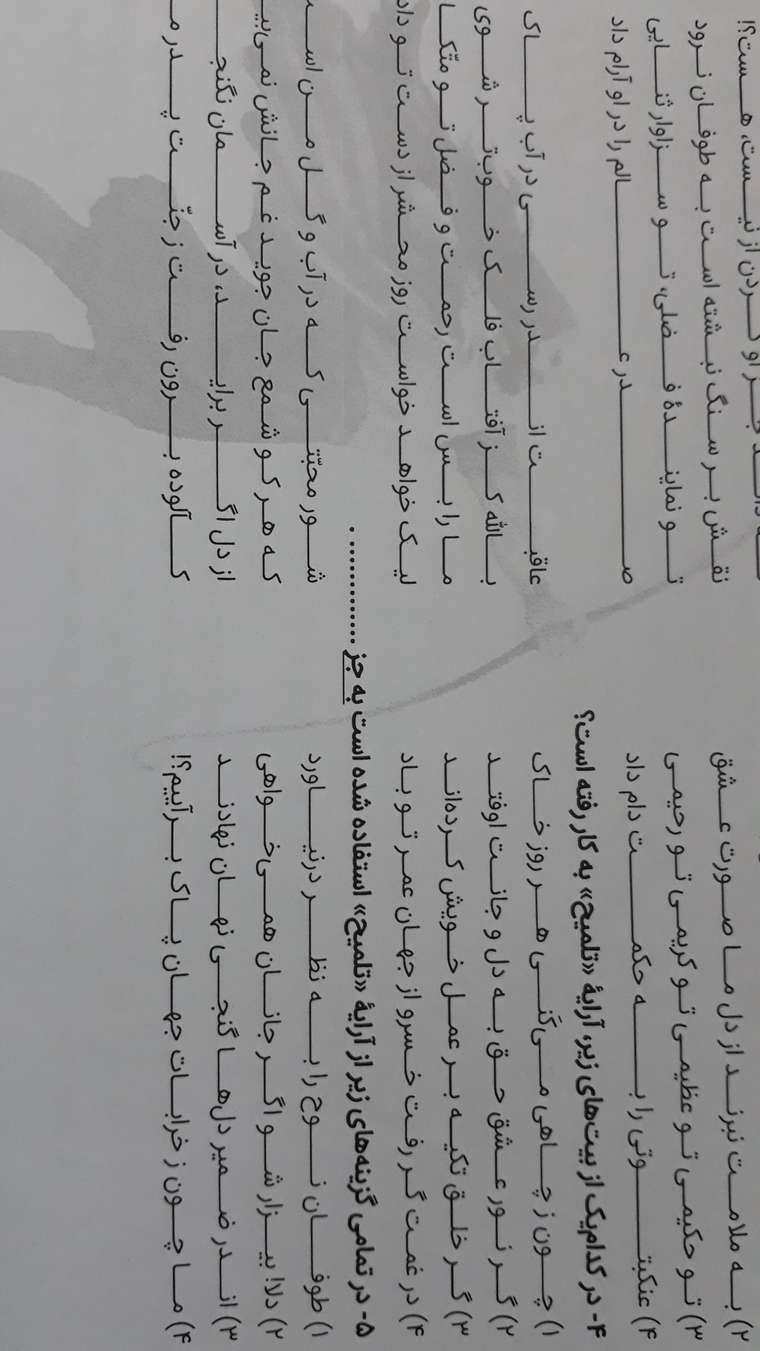 جز او کردن از نیست، هست؟!
۲) به ملامت نبرند از دل ما صورت عشق نقش بر سنگ نبشته است به طوفان نرود
۳) تو حکیمی تو عظیمی تو کریمی تو رحیمی تو نمایندهٔ فضلی، تو سزاوار ثنایی
۴) عنکبوتی را به حکمت دام داد صدر عالم را در او آرام داد
۴- در کدام‌یک از بیت‌های زیر، آرایهٔ «تلمیح» به کار رفته است؟
۱) چون ز چاهی می‌کَنی هر روز خاک عاقبت اندر رسی در آب پاک
۲) گر نور عشق حق به دل و جانت اوفتد بالله کز آفتاب فلک خوب‌تر شوی
۳) گر خلق تکیه بر عمل خویش کرده‌اند ما را بس است رحمت و فضل تو متّکا
۴) در غمت گر رفت خسرو از جهان عمر تو باد لیک خواهد خواست روز محشر از دست تو داد
۵- در تمامی گزینه‌های زیر از آرایهٔ «تلمیح» استفاده شده است به جز .............. .
۱) طوفان نوح را به نظر درنیاورد شور محبّتی که در آب و گل من
۲) دلا! بیزار شو از جانان همی‌خواهی که هر کو شمع جان جوید غم جانش
۳) اندر ضمیر دل‌ها گنجی نهان نهادند از دل اگر برآید، در آسمان نگنجد
۴) ما چون ز خرابات جهان پاک برآییم؟! کآلوده برون رفت ز جنّت پدر